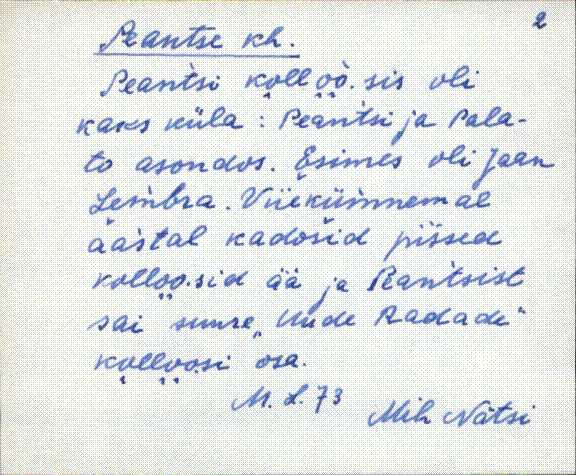 2
Peantse kh.
Peantsi kolloo.sis oli
kaks küla : Peantsi ja Pala-
to asondos. Esimes oli Jaan
Lembra. Viiekümnemal
aastal kadosid pissed
kolloo.sid ää ja Peantsist
sai suure „Uude Radade"
kolloosi osa.
M. L. 73
Mih Nätsi